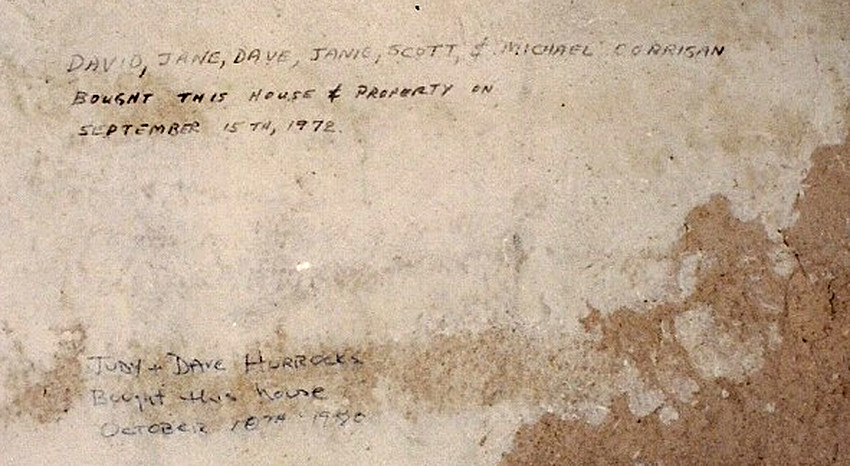 DAVID, JANE, DAVE, JANIE, SCOTT, & MICHAEL CORRIGAN
BOUGHT THIS HOUSE & PROPERTY ON
SEPTEMBER 15TH, 1972.
JUDY + DAVE HURROCKS
Bought this house
OCTOBER 18TH 1980